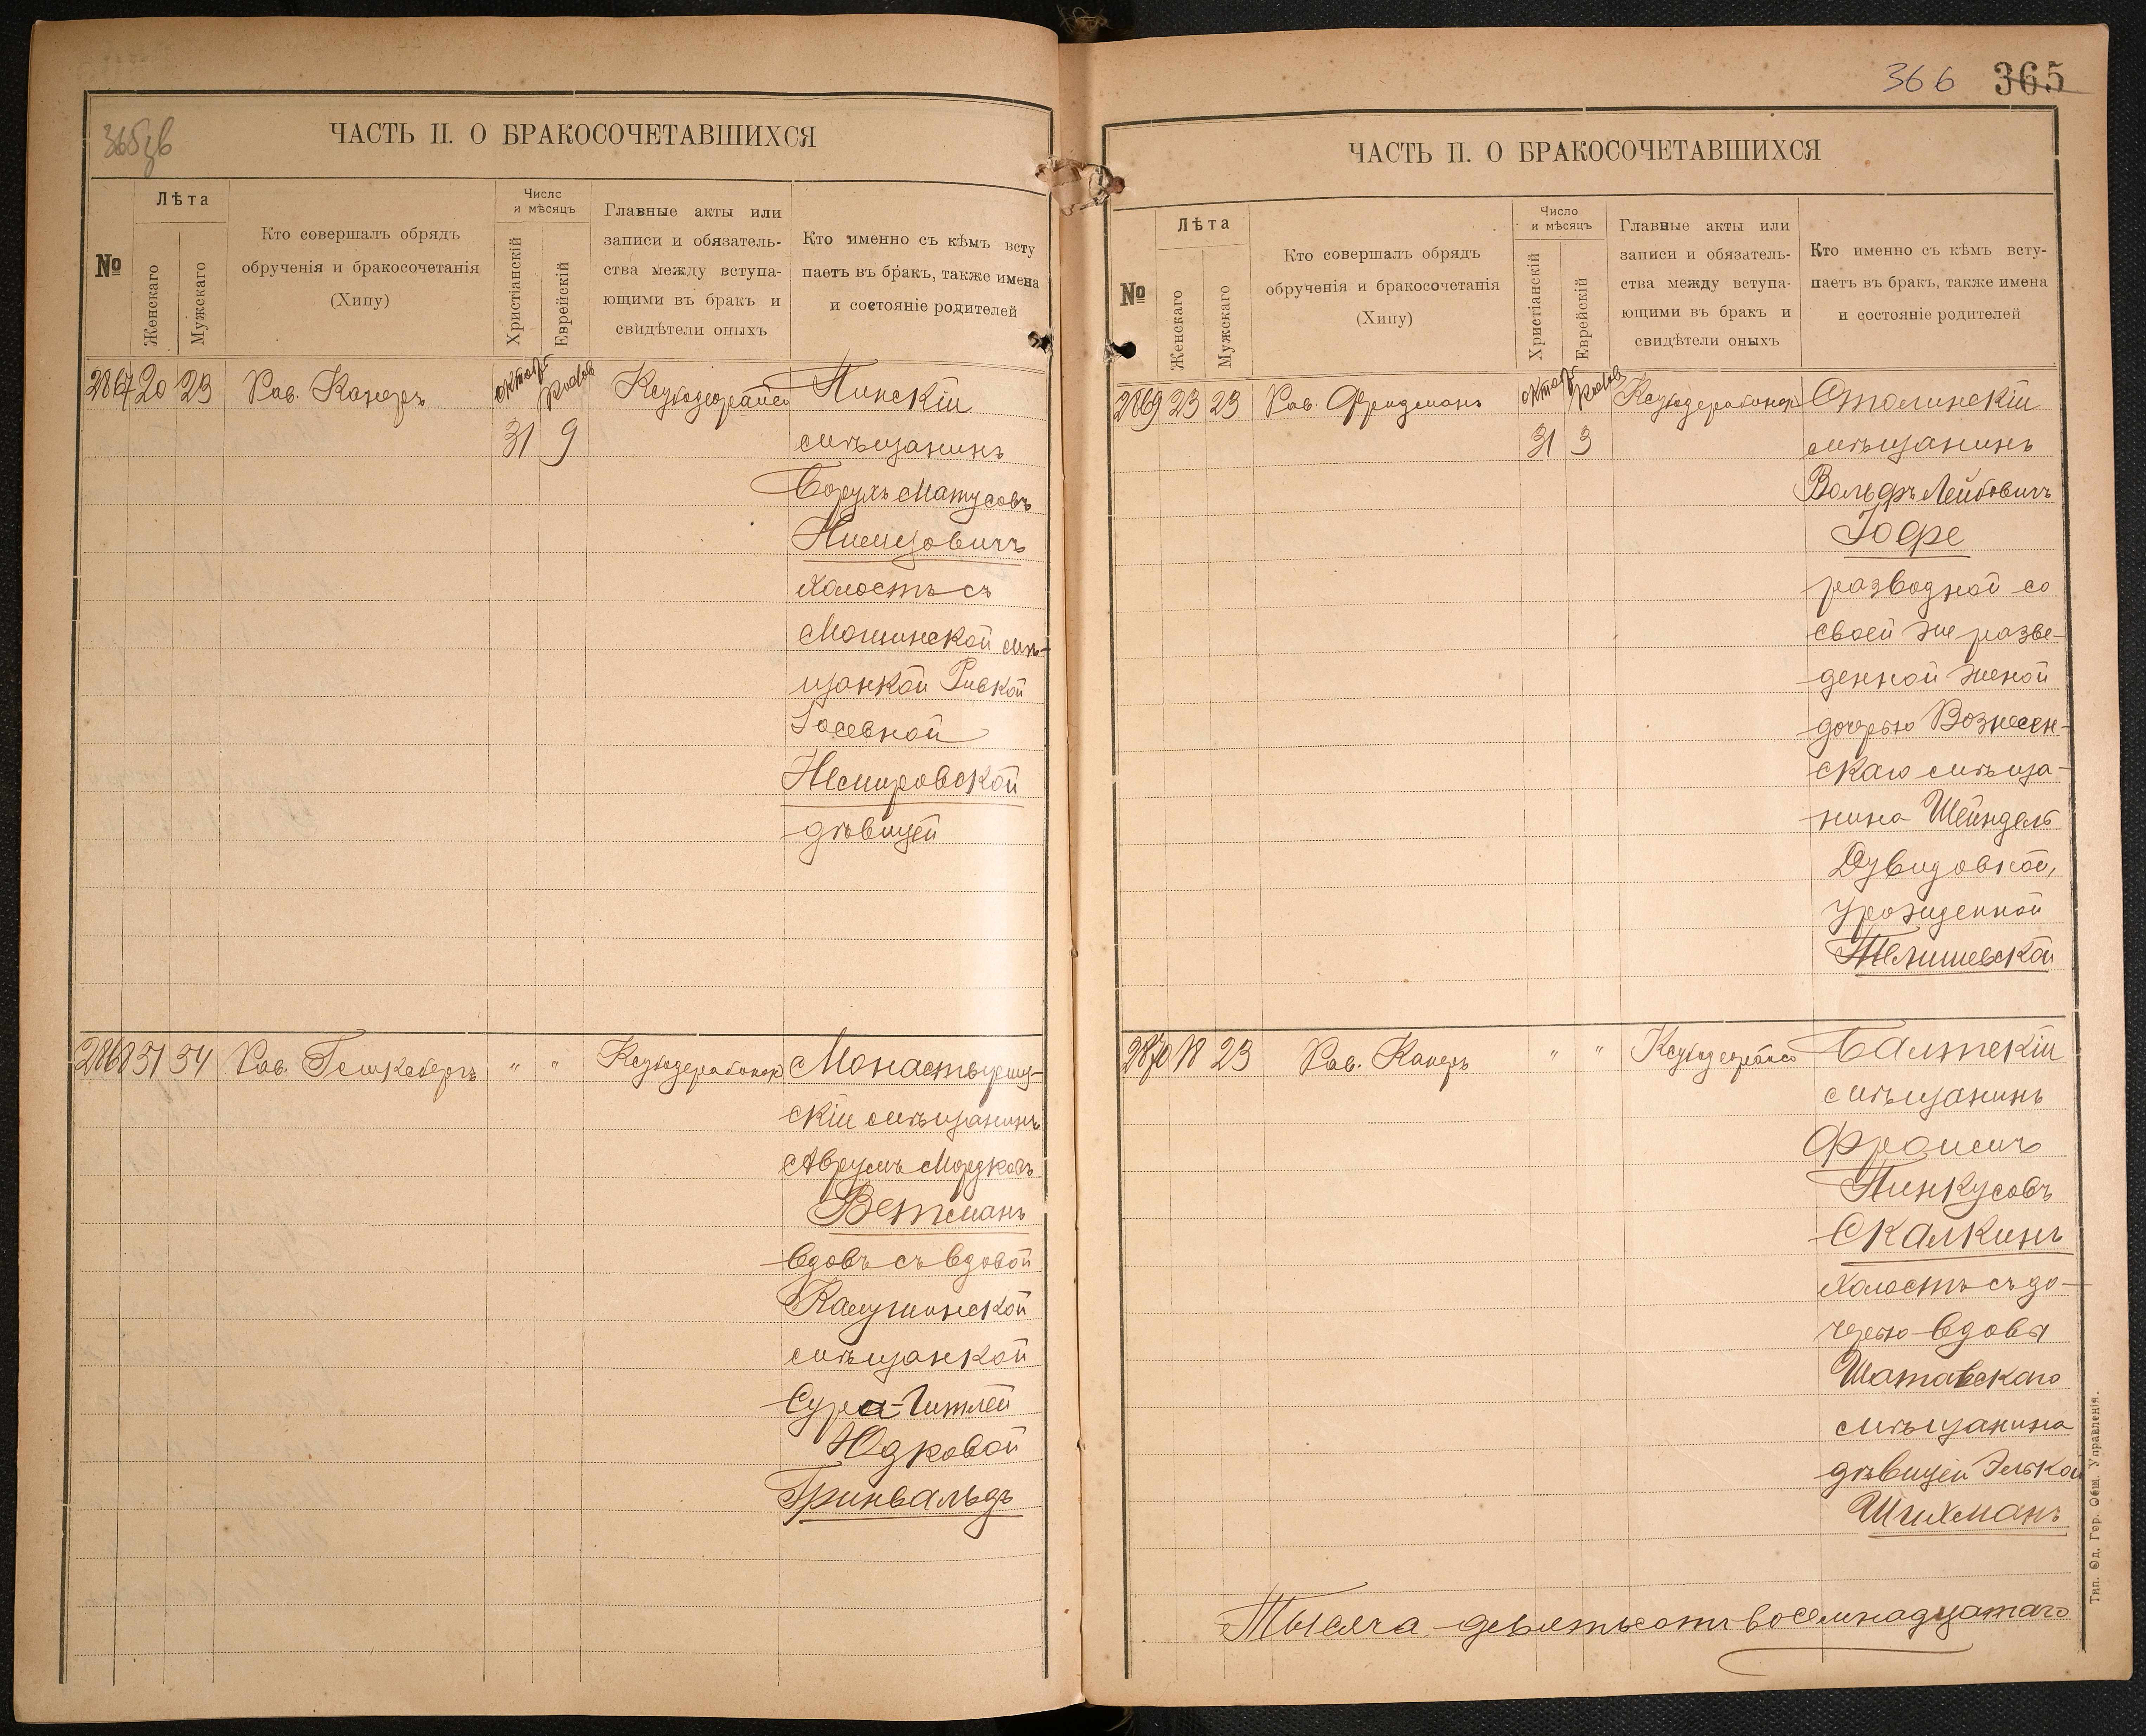 365зв
ЧАСТЬ II. О БРАКОСОЧЕТАВШИХСЯ
№
Лѣта
Женскаго
Мужскаго
Кто совершалъ обрядъ
обрученія и бракосочетанія
(Хипу)
Число
и мѣсяцъ
Христіанскій
Еврейскій
Главные акты или
записи и обязатель-
ства между вступа-
ющими въ бракъ и
свидѣтели оныхъ
Кто именно съ кѣмъ всту
паетъ въ бракъ, также имена
и состояніе родителей
2867 20 23 Рав. Канеръ октобр 31 9 Пинскій
мѣщанинъ
Борухъ Матусовъ
холостъ съ
мѣ-
щанкой Ривкой
Іосевной
Немировской
дѣвицей
2868 51 54 Рав. " " Монастырищ-
скій мѣщанинъ
Аврумъ Мордковъ
Ветманъ
вдовъ съ вдовой
мѣщанкой
Сура-Гитлей
Юдковой
Гринвальдъ
366 365
ЧАСТЬ II. О БРАКОСОЧЕТАВШИХСЯ
№
Лѣта
Женскаго
Мужскаго
Кто совершалъ обрядъ
обрученія и бракосочетанія
(Хипу)
Число
и мѣсяцъ
Христіанскій
Еврейскій
Главные акты или
записи и обязатель-
ства между вступа-
ющими въ бракъ и
свидѣтели оныхъ
Кто именно съ кѣмъ всту-
паетъ въ бракъ, также имена
и состояніе родителей
2869 23 23 Рав. Фридманъ октобр 31 3 Столинскій
мѣщанинъ
Вольфъ Лейбовичъ
Іофе
разводной со
своей же разве-
денной женой
дочерью Вознесен-
скаго мѣща-
нина Шейндель
Дувидовной,
урожденной
2870 18 23 Рав. Канеръ " " Балтскій
мѣщанинъ
Фроимъ
Пинкусовъ
Скалкинъ
холостъ съ до-
черью вдовы
Шатавскаго
мѣщанина
дѣвицей Элькой
Шихманъ
Тысяча девятьсотъ восемнадцатаго
Тип. Од. Гор. Общ. Управленія.